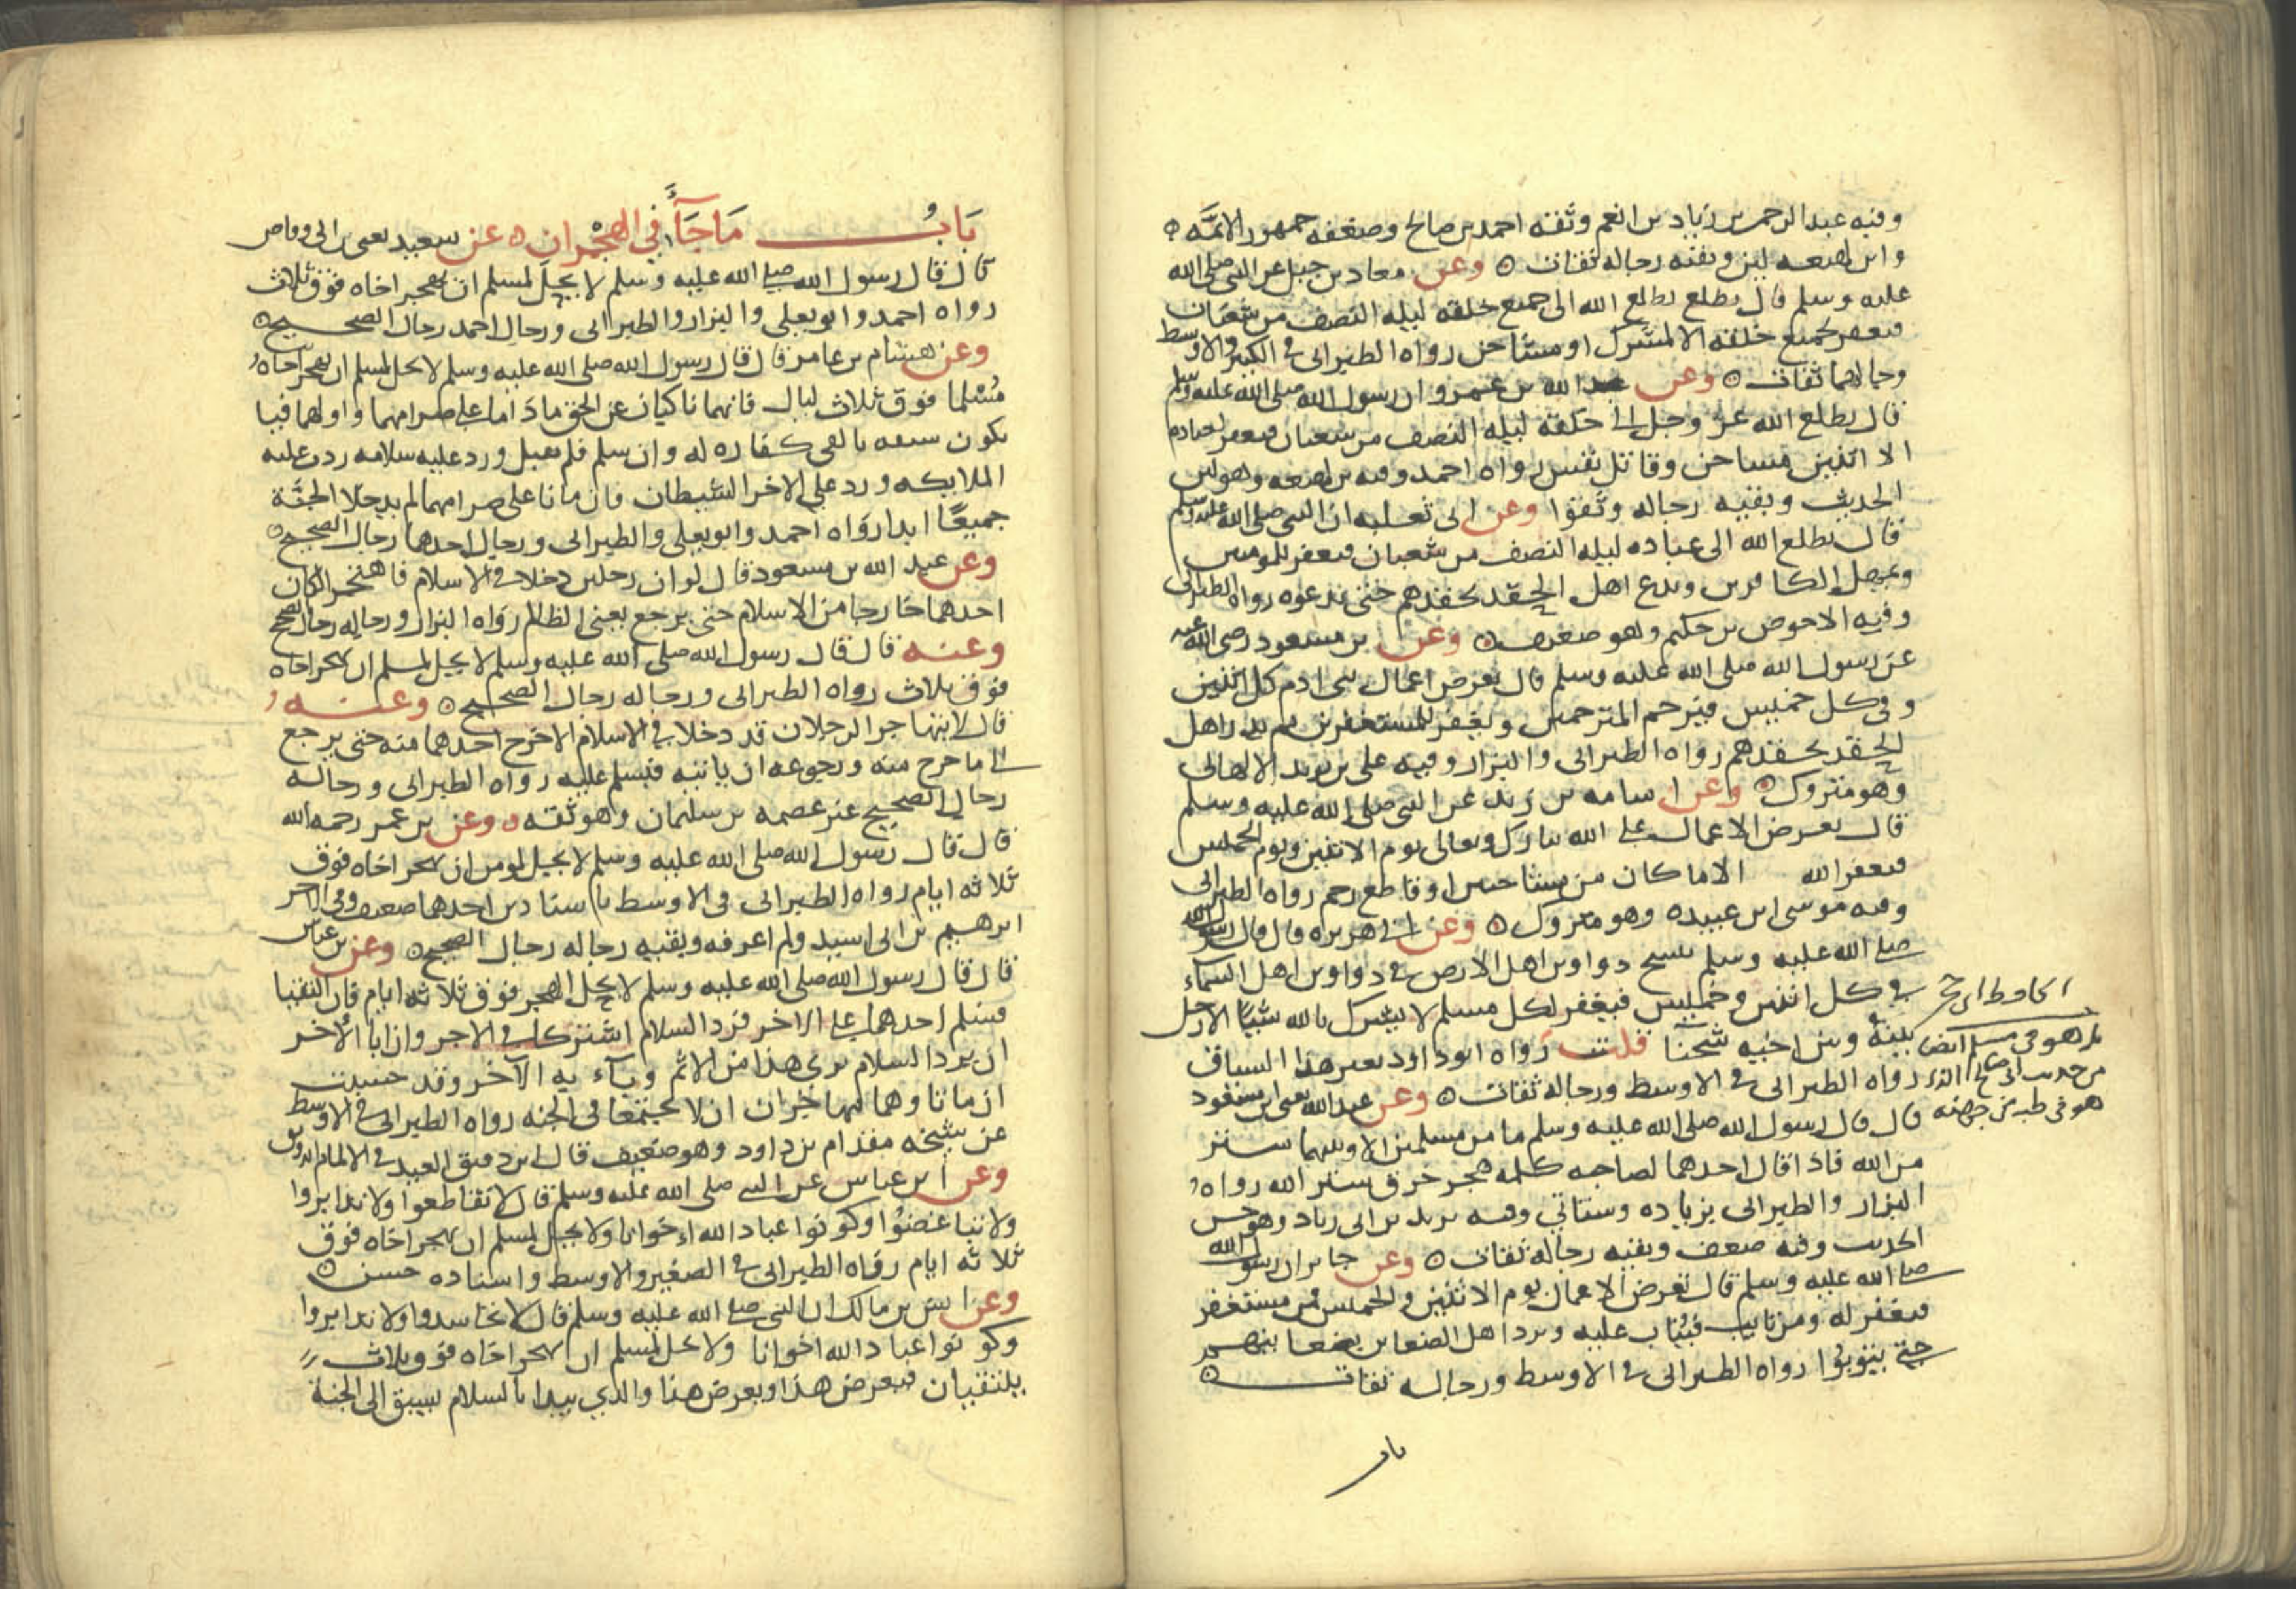 وفيه عبد الرحمن بن زياد بن انعم وثقه احمد بن صالح وضعفه جمهور الائمة
وابن لهيعه لين وبقيه رجاله ثقات وعن معاذ بن جبل عن النبي صلى الله
عليه وسلم قال يطلع يطلع الله الى جميع خلقه ليله النصف من شعبان
فيغفر لجميع خلقه الا لمشرك او مشاحن رواه الطبراني في الكبير والاوسط
ورجالهما ثقات وعن عبد الله بن عمرو ان رسول الله صلى الله عليه وسلم
قال يطلع الله عز وجل الى خلقه ليله النصف من شعبان فيغفر لعباده
الا اثنين مشاحن وقاتل نفس رواه احمد وفيه بن لهيعه وهو لين
الحديث وبقيه رجاله وثقوا وعن ابي ثعلبه ان النبي صلى الله عليه وسلم
قال يطلع الله الى عباده ليله النصف من شعبان فيغفر للمومنين
ويمهل الكافرين ويدع اهل الحقد بحقدهم حتى يدعوه رواه الطبراني
وفيه الاحوص بن حكيم وهو ضعيف وعن بن مسعود رضي الله عنه
عن رسول الله صلى الله عليه وسلم قال تعرض اعمال بني ادم كل اثنين
وفي كل خميس فيرحم المترحمين ويغفر للمستغفرين ثم يذر اهل
الحقد بحقدهم رواه الطبراني والبزار وفيه علي بن يزيد الالهاني
وهو متروك وعن اسامه بن زيد عن النبي صلى الله عليه وسلم
قال تعرض الاعمال على الله تبارك وتعالى يوم الاثنين ويوم الخميس
فيغفر الله الا ما كان من متشاحنين او قاطع رحم رواه الطبراني
وفيه موسى ابن عبيده وهو متروك وعن ابي هريره قال قال رسول الله
صلى الله عليه وسلم تنسخ دواوين اهل الارض في دواوين اهل السماء
في كل اثنين وخميس فيغفر لكل مسلم لا يشرك بالله شيئا الا رجل
بينه وبين اخيه شحنا قلت رواه ابو داود بغير هذا السياق
رواه الطبراني في الاوسط ورجاله ثقات وعن عبد الله يعني ابن مسعود
قال قال رسول الله صلى الله عليه وسلم ما من مسلمين الا وبينهما ستر
من الله فاذا قال احدهما لصاحبه كلمه هجر خرق ستر الله رواه
البزار والطبراني بزياده وستاتي وفيه يزيد بن ابي زياد وهو حسن
الحديث وفيه ضعف وبقيه رجاله ثقات وعن جابر ان رسول الله
صلى الله عليه وسلم قال تعرض الاعمال يوم الاثنين والخميس فمن مستغفر
فيغفر له ومن تايب فيتاب عليه ويرد اهل الضغاين بضغاينهم
حتى يتوبوا رواه الطبراني في الاوسط ورجاله ثقات
باب
بل هو في مسلم ايضا
من حديث ابي صالح
هو في طبه من جهته
باب ما جاء في الهجران عن سعيد يعني بن ابي وقاص
قال قال رسول الله صلى الله عليه وسلم لا يحل لمسلم ان يهجر اخاه فوق ثلاث
رواه احمد وابو يعلى والبزار والطبراني ورجال احمد رجال الصحيح
وعن هشام بن عامر قال قال رسول الله صلى الله عليه وسلم لا يحل لمسلم ان يهجر اخاه
مسلما فوق ثلاث ليال فانهما ناكبان عن الحق ماداما على صرامهما واولهما فيا
يكون سبقه بالفى كفاره له وان سلم فلم يقبل ورد عليه سلامه ردت عليه
الملايكه ورد على الاخر الشيطان فان ماتا على صرامهما لم يدخلا الجنة
جميعا ابدا رواه احمد وابو يعلى والطبراني ورجال احدهما رجال الصحيح
وعن عبد الله بن مسعود قال لو ان رجلين دخلا في الاسلام فاهتجرا لكان
احدهما خارجا من الاسلام حتى يرجع يعني الظالم رواه البزار ورجاله رجال الصحيح
وعنه قال قال رسول الله صلى الله عليه وسلم لا يحل لمسلم ان يهجر اخاه
فوق ثلاث رواه الطبراني ورجاله رجال الصحيح وعنه
قال لا يتهاجر الرجلان قد دخلا في الاسلام الا خرج احدهما منه حتى يرجع
الى ما خرج منه ورجوعه ان ياتيه فيسلم عليه رواه الطبراني ورجاله
رجال الصحيح غير عصمه بن سليمان وهو ثقه وعن بن عمر رحمه الله
قال قال رسول الله صلى الله عليه وسلم لا يحل لمومن ان يهجر اخاه فوق
ثلاثه ايام رواه الطبراني في الاوسط باسنادين احدهما ضعيف وفي الاخر
ابرهيم بن ابي اسيد ولم اعرفه وبقيه رجاله رجال الصحيح وعن بن عباس
قال قال رسول الله صلى الله عليه وسلم لا يحل الهجر فوق ثلاثه ايام فان التقيا
فسلم احدهما على الاخر فرد السلام اشتركا في الاجر وان ابا الاخر
ان يرد السلام برى هذا من الاثم وباء به الآخر وقد حسبت
ان ماتا وهما متهاجران ان لا يجتمعا في الجنه رواه الطبراني في الاوسط
عن شيخه مقدام بن داود وهو ضعيف قال ابن دقيق العيد في الالمام انه وثق
وعن ابن عباس عن النبي صلى الله عليه وسلم قال لا تقاطعوا ولا تدابروا
ولا تباغضوا وكونوا عباد الله اخوانا ولا يحل لمسلم ان يهجر اخاه فوق
ثلاثه ايام رواه الطبراني في الصغير والاوسط واسناده حسن
وعن انس بن مالك ان النبي صلى الله عليه وسلم قال لا تحاسدوا ولا تدابروا
وكونوا عباد الله اخوانا ولا يحل لمسلم ان يهجر اخاه فوق ثلاث
يلتقيان فيعرض هذا ويعرض هذا والذي يبدا بالسلام يسبق الى الجنة